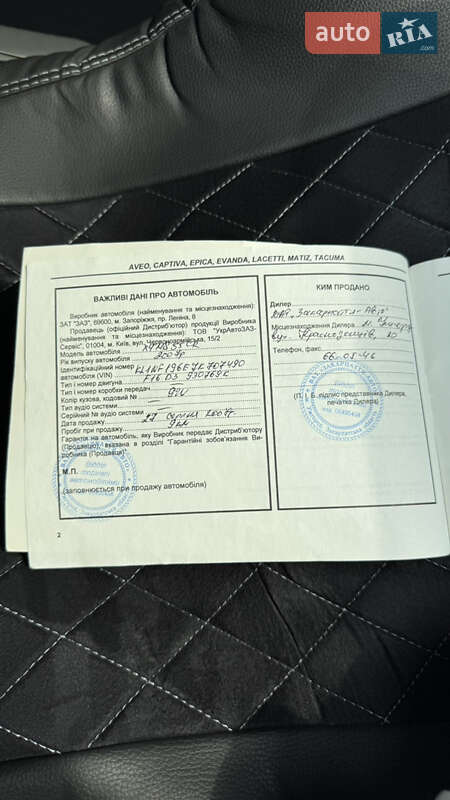 auto RIA .com
AVEO, CAPTIVA, EPICA, EVANDA, LACETTI, MATIZ, TACUMA
ВАЖЛИВІ ДАНІ ПРО АВТОМОБІЛЬ
Виробник автомобіля (найменування та місцезнаходження)
ЗАТ "ЗАЗ", 69600, м. Запоріжжя, пр. Леніна, 8
Продавець (офіційний Дистриб'ютор) продукції Виробника
(найменування та місцезнаходження) ТОВ "УкрАвтоЗАЗ-
Сервіс", 01004, м. Київ, вул. Червоноармійська, 15/2
Модель автомобіля
Рік випуску автомобіля 2007р
Ідентифікаційний номер
автомобіля (VIN)
Тип і номер двигуна F16D3
Тип і номер коробки передач
Колір кузова, кодовий № —
Тип аудіо системи
Серійний № аудіо системи
Дата продажу 27 серпня 2007р
Пробіг при продажу 9 км
Гарантія на автомобіль, яку Виробник передає Дистриб'ютору
(Продавцю), вказана в розділі "Гарантійні зобов'язання Ви-
робника (Продавця)".
М.П.
Відділ
продажу
автомобілів
(заповнюється при продажу автомобіля)
2
КИМ ПРОДАНО
Дилер
ВАТ "Закарпаття-Авто"
Місцезнаходження Дилера м. Ужгород
вул.
Телефон, факс
66-05-46
(П. І. Б., підпис представника Дилера,
печатка Дилера)